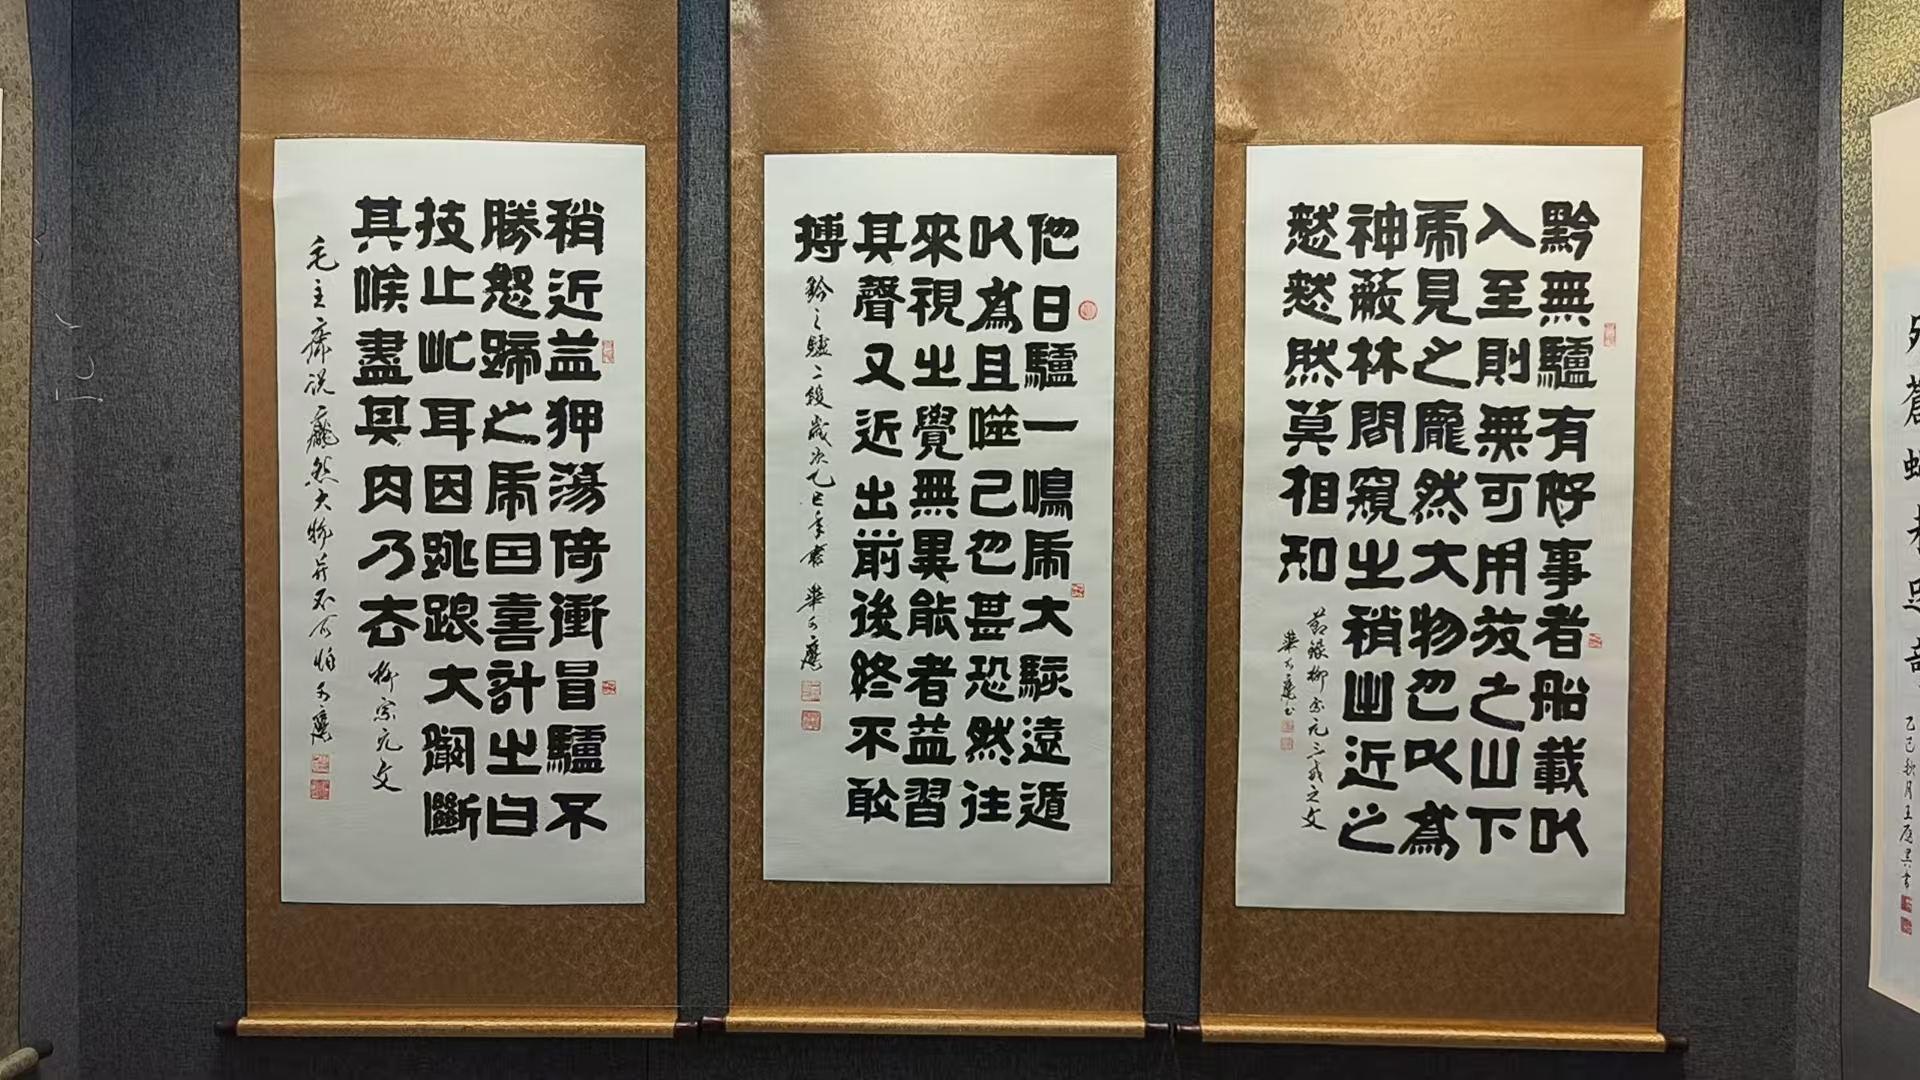 黔無驢有好事者船載以
入至則無可用放之山下
虎見之龐然大物也以爲
神蔽林間窺之稍出近之
憖憖然莫相知
節錄柳宗元三戒之文
他日驢一鳴虎大駭遠遁
以爲且噬己也甚恐然往
來視之覺無異能者益習
其聲又近出前後終不敢
搏
黔之驢二段歲次乙巳年書
稍近益狎蕩倚衝冒驢不
勝怒蹄之虎因喜計之曰
技止此耳因跳踉大㘚斷
其喉盡其肉乃去
柳宗元文
毛主席説龐然大物并不可怕
乙巳秋月王